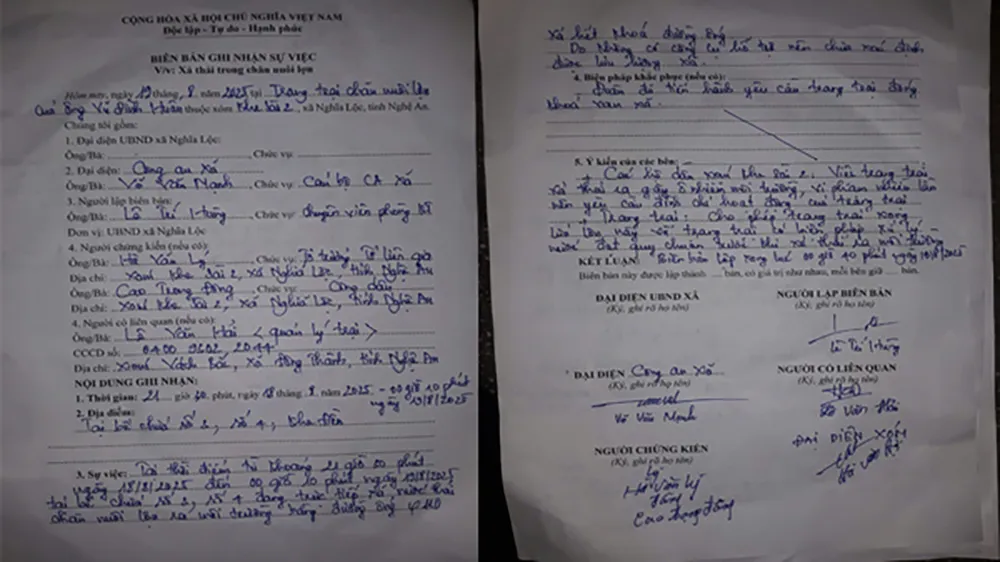 CỘNG HÒA XÃ HỘI CHỦ NGHĨA VIỆT NAM
Độc lập - Tự do - Hạnh phúc
BIÊN BẢN GHI NHẬN SỰ VIỆC
V/v: Xả thải trong chăn nuôi lợn
Hôm nay, ngày 19 tháng 8 năm 2025 tại Trang trại chăn nuôi lợn
của ông Võ Đình Huân thuộc xóm Khe Sài 2, xã Nghĩa Lộc, tỉnh Nghệ An.
Chúng tôi gồm:
1. Đại diện UBND xã Nghĩa Lộc:
Ông/Bà: , Chức vụ:
2. Đại diện: Công an xã
Ông/Bà: Võ Văn Mạnh, Chức vụ: Cán bộ CA xã
3. Người lập biên bản:
Ông/Bà: Lê Tú Hùng, Chức vụ: Chuyên viên phòng
Đơn vị: UBND xã Nghĩa Lộc
4. Người chứng kiến (nếu có):
Ông/Bà: Hồ Văn Lý, Tổ trưởng Tổ liên gia
Địa chỉ: xóm Khe Sài 2, xã Nghĩa Lộc, tỉnh Nghệ An
Ông/Bà: Cao Trọng Đồng, Công dân
Địa chỉ: xóm Khe Sài 2, xã Nghĩa Lộc, tỉnh Nghệ An
4. Người có liên quan (nếu có):
Ông/Bà: Lê Văn Hải < quản lý trại >
CCCD số: 0400 9602 2044
Địa chỉ: xóm Vách Bắc, xã Đông Thành, tỉnh Nghệ An
NỘI DUNG GHI NHẬN:
1. Thời gian: 21 giờ 00 phút, ngày 18 tháng 8 năm 2025 - 00 giờ 10 phút
ngày 19/8/2025
2. Địa điểm:
Tại bể chứa số 3, số 4,
3. Sự việc: Tại thời điểm từ khoảng 21 giờ 00 phút
ngày 18/8/2025 đến 00 giờ 10 phút ngày 19/8/2025
tại bể chứa số 3, số 4 đang trực tiếp xả nước thải
chăn nuôi lợn ra môi trường bằng đường ống φ110
xả hết khoá đường ống
Do không có công cụ hỗ trợ nên chưa xác định
được lưu lượng xả.
4. Biện pháp khắc phục (nếu có):
Đoàn đã tiến hành yêu cầu trang trại đóng
khoá van xả.
5. Ý kiến của các bên:
+ Cán bộ dân xóm Khe Sài 2: Việc trang trại
xả thải ra gây ô nhiễm môi trường, vi phạm nhiều lần
nên yêu cầu đình chỉ hoạt động của trang trại
+ Trang trại: Cho phép trang trại xong
lứa lợn này và trang trại có biện pháp xử lý
nước đạt quy chuẩn trước khi xả thải ra môi trường
KẾT LUẬN: Biên bản lập xong lúc 00 giờ 40 phút ngày 19/8/2025
Biên bản này được lập thành ... bản, có giá trị như nhau, mỗi bên giữ ... bản.
ĐẠI DIỆN UBND XÃ
(Ký, ghi rõ họ tên)
NGƯỜI LẬP BIÊN BẢN
(Ký, ghi rõ họ tên)
Lê Tú Hùng
ĐẠI DIỆN Công an xã
(Ký, ghi rõ họ tên)
Võ Văn Mạnh
NGƯỜI CÓ LIÊN QUAN
(Ký, ghi rõ họ tên)
Lê Văn Hải
NGƯỜI CHỨNG KIẾN
(Ký, ghi rõ họ tên)
Lý
Hồ Văn Lý
Đồng
Cao Trọng Đồng
ĐẠI DIỆN XÓM